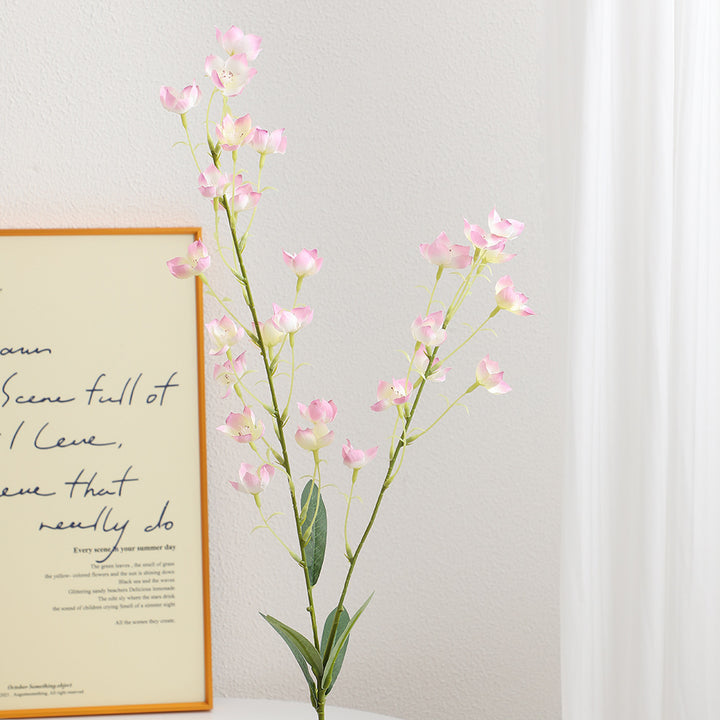 Scene full of
I Leve,
that
really do
Every scene in your summer day
The green leaves , the smell of grass
the yellow- colored flowers and the sun is shining down
Black sea and the waves
Glittering sandy beaches Delicious lemonade
The nifit sly where the stars drink
the sound of children crying Smell of a sinster night
All the scenes they create.
October Something.object
2021 . Augustsomething. All right reserved